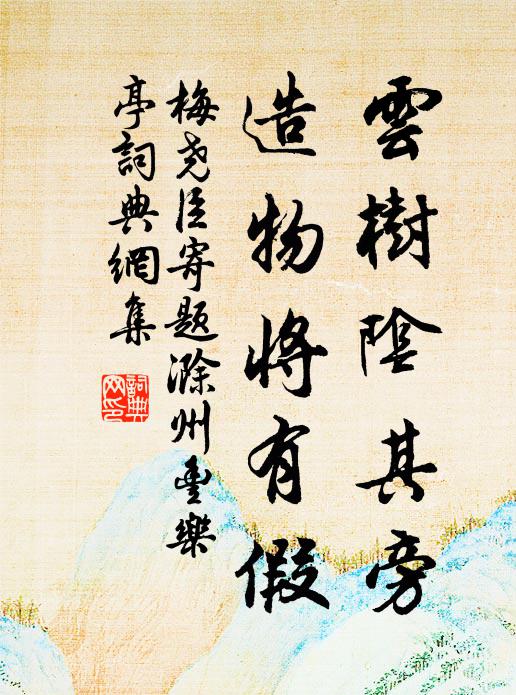 雲樹陰其旁
造物將有假
梅尧臣寄題滁州豊樂
亭詞典網集
詞典
网印